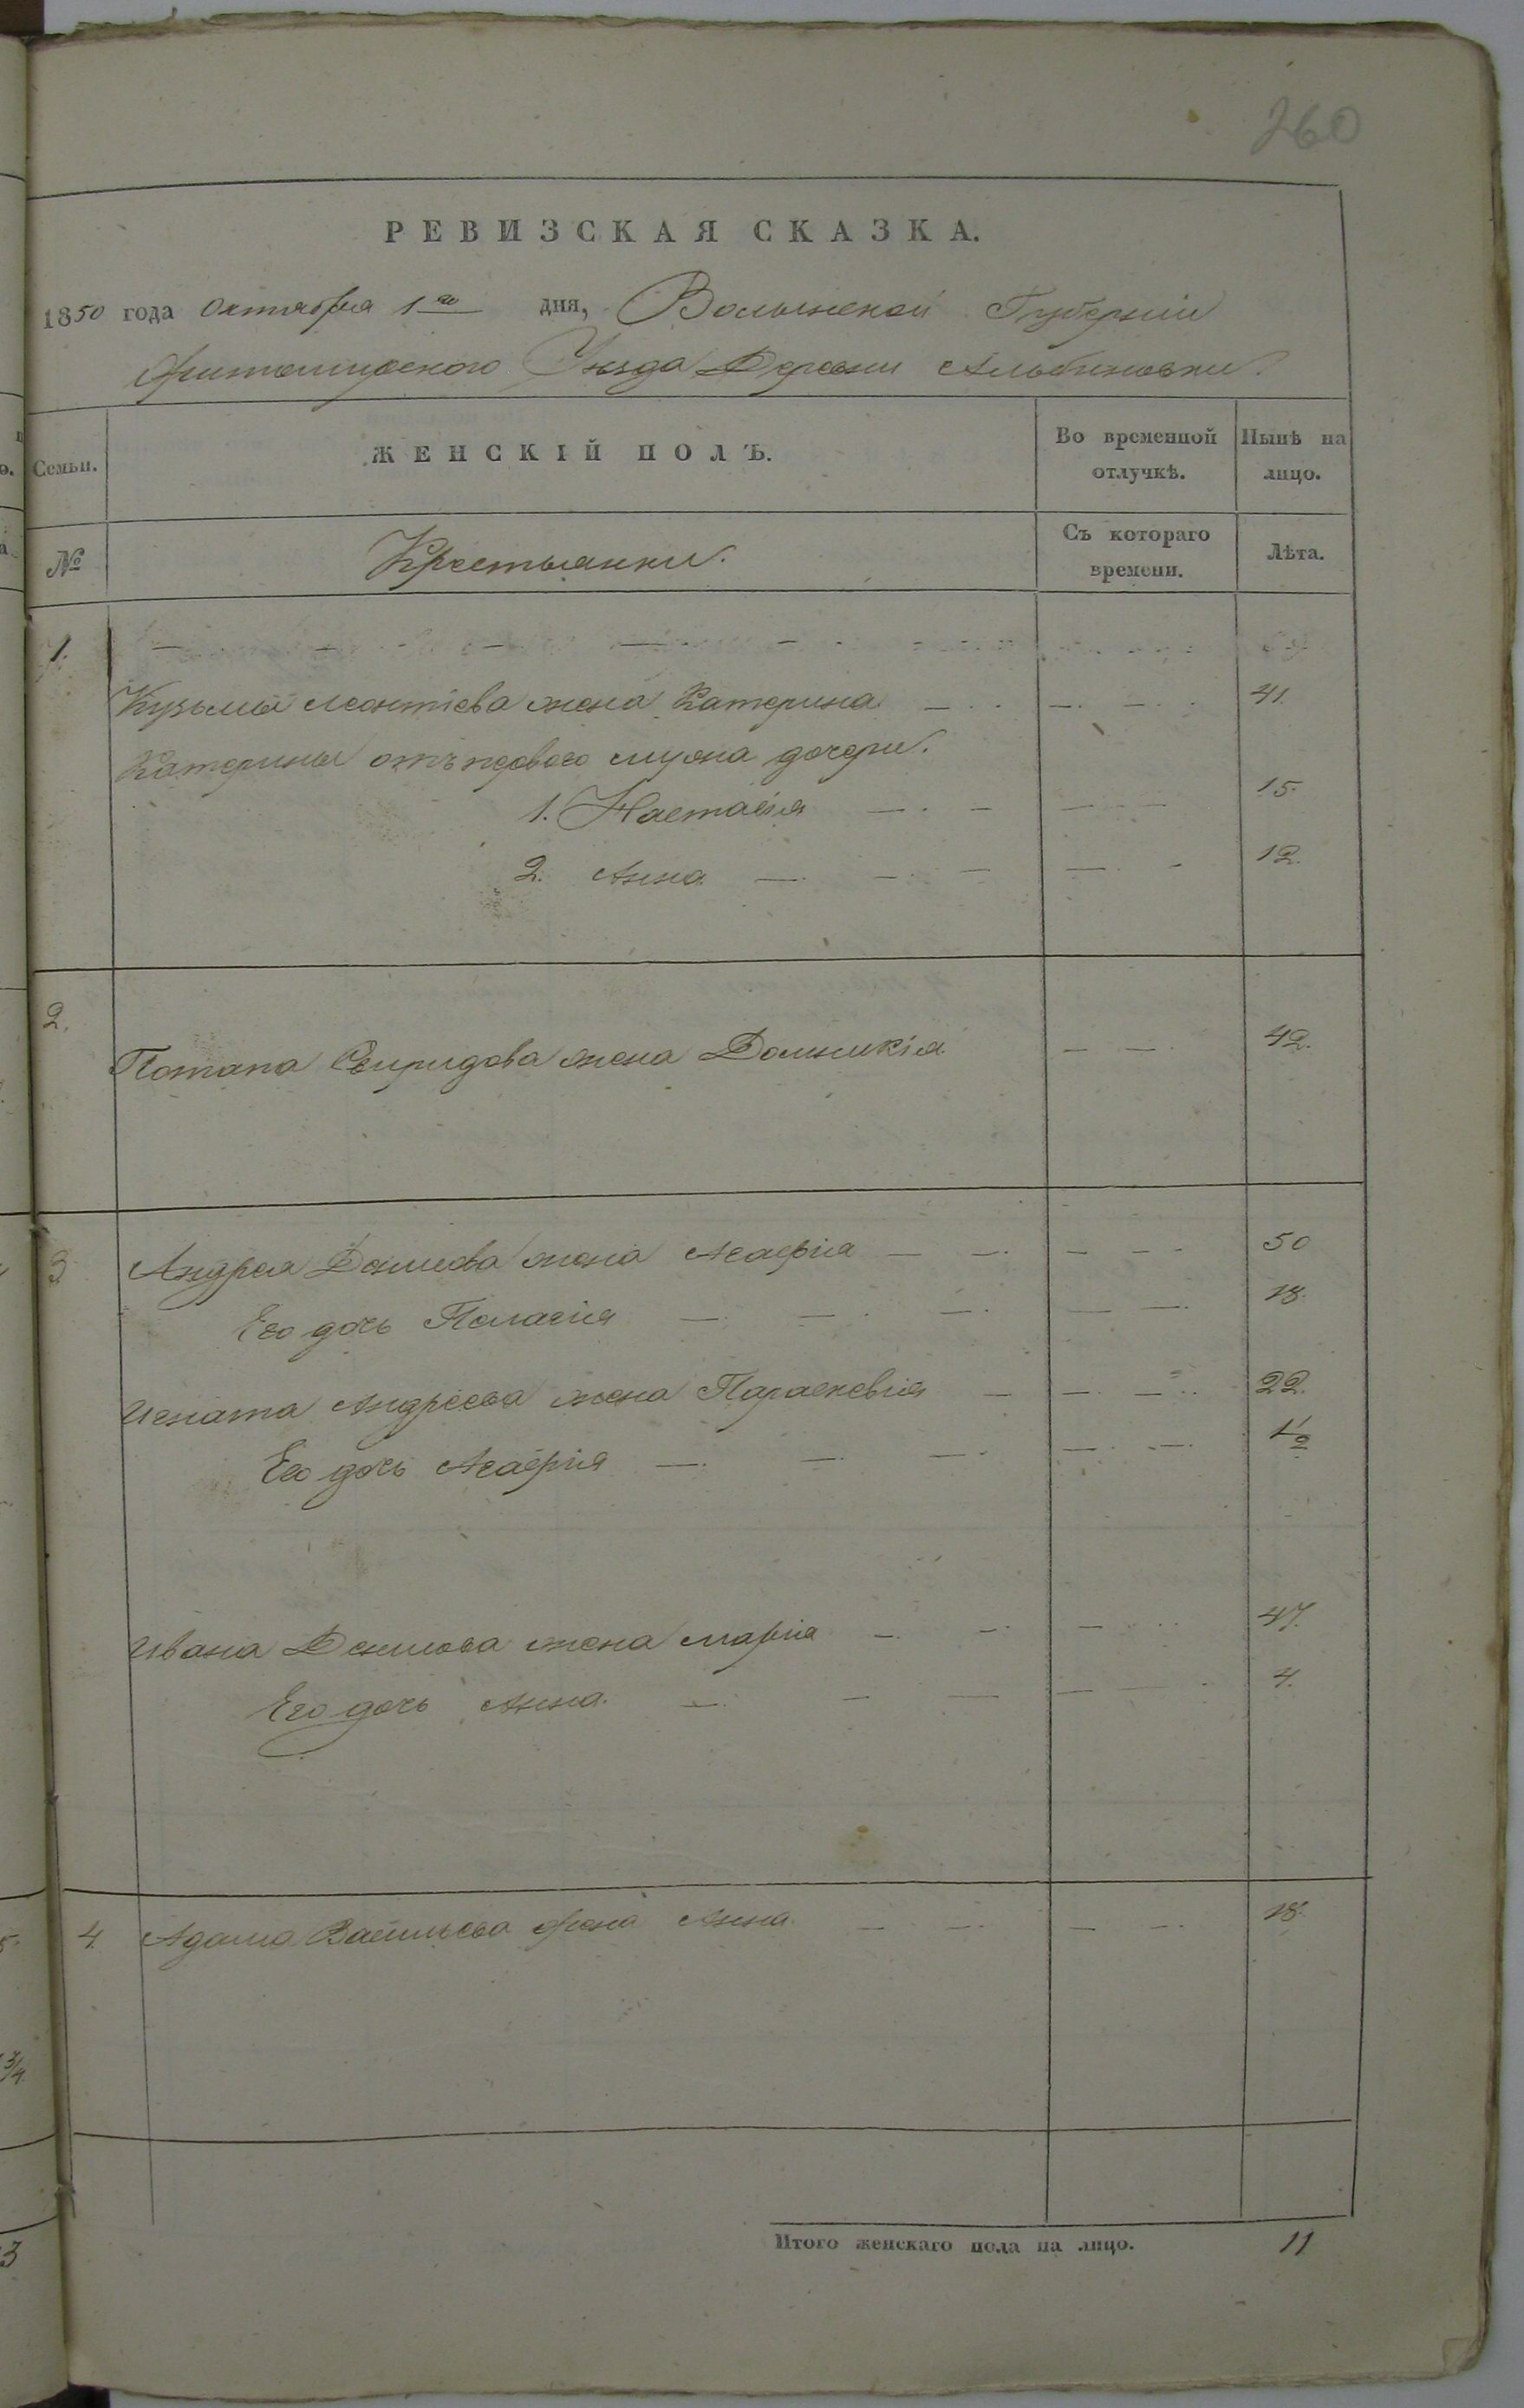 260
РЕВИЗСКАЯ СКАЗКА.
1850 года Октября 1го дня, Волынской Губерніи
Житомирского Уезда Деревни Альбиновки.
Семьи. ЖЕНСКІЙ ПОЛЪ. Во временной отлучкѣ. Нынѣ на лицо.
№ Крестьянки. Съ котораго времени. Лѣта.
1.
Кузьмы Леонтіева жена Катерина 41.
Катерины отъ первого мужа дочери.
1. Настасія 15.
2. Анна 12.
2.
Потапа Свиридова жена Домникія 42.
3 Андрея Денисова жена Агафія 50
Его дочь Пелагия 18.
Игната Андреева жена Параскевия 22.
Его дочь Агафія 1/2
Ивана Денисова жена Марія 47.
Его дочь Анна. 4.
4. Адама Васильева жена Анна 18.
3/4
Итого женскаго пола на лицо. 11
3